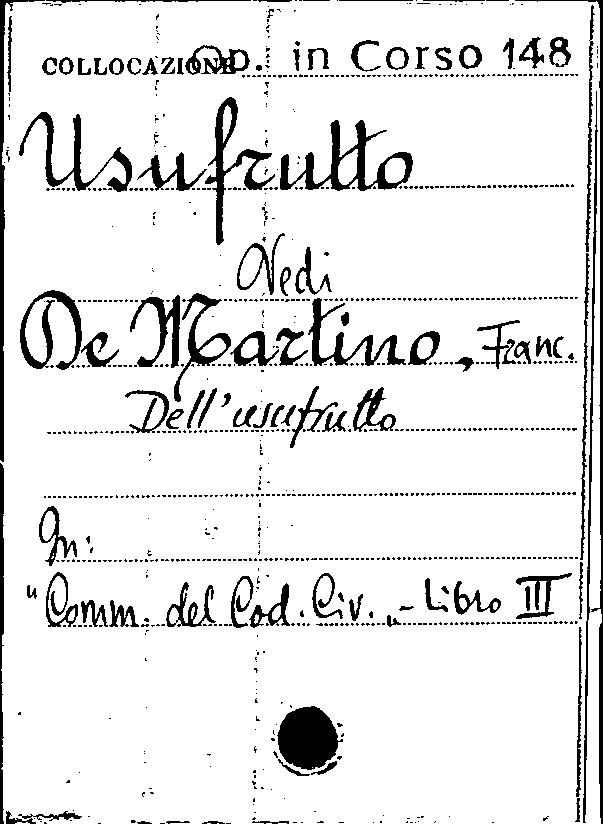 COLLOCAZIONE Op. in Corso 148
Usufrutto
Vedi
De Martino, Franc.
Dell'usufrutto
In:
"Comm. del Cod. Civ. „ - Libro III